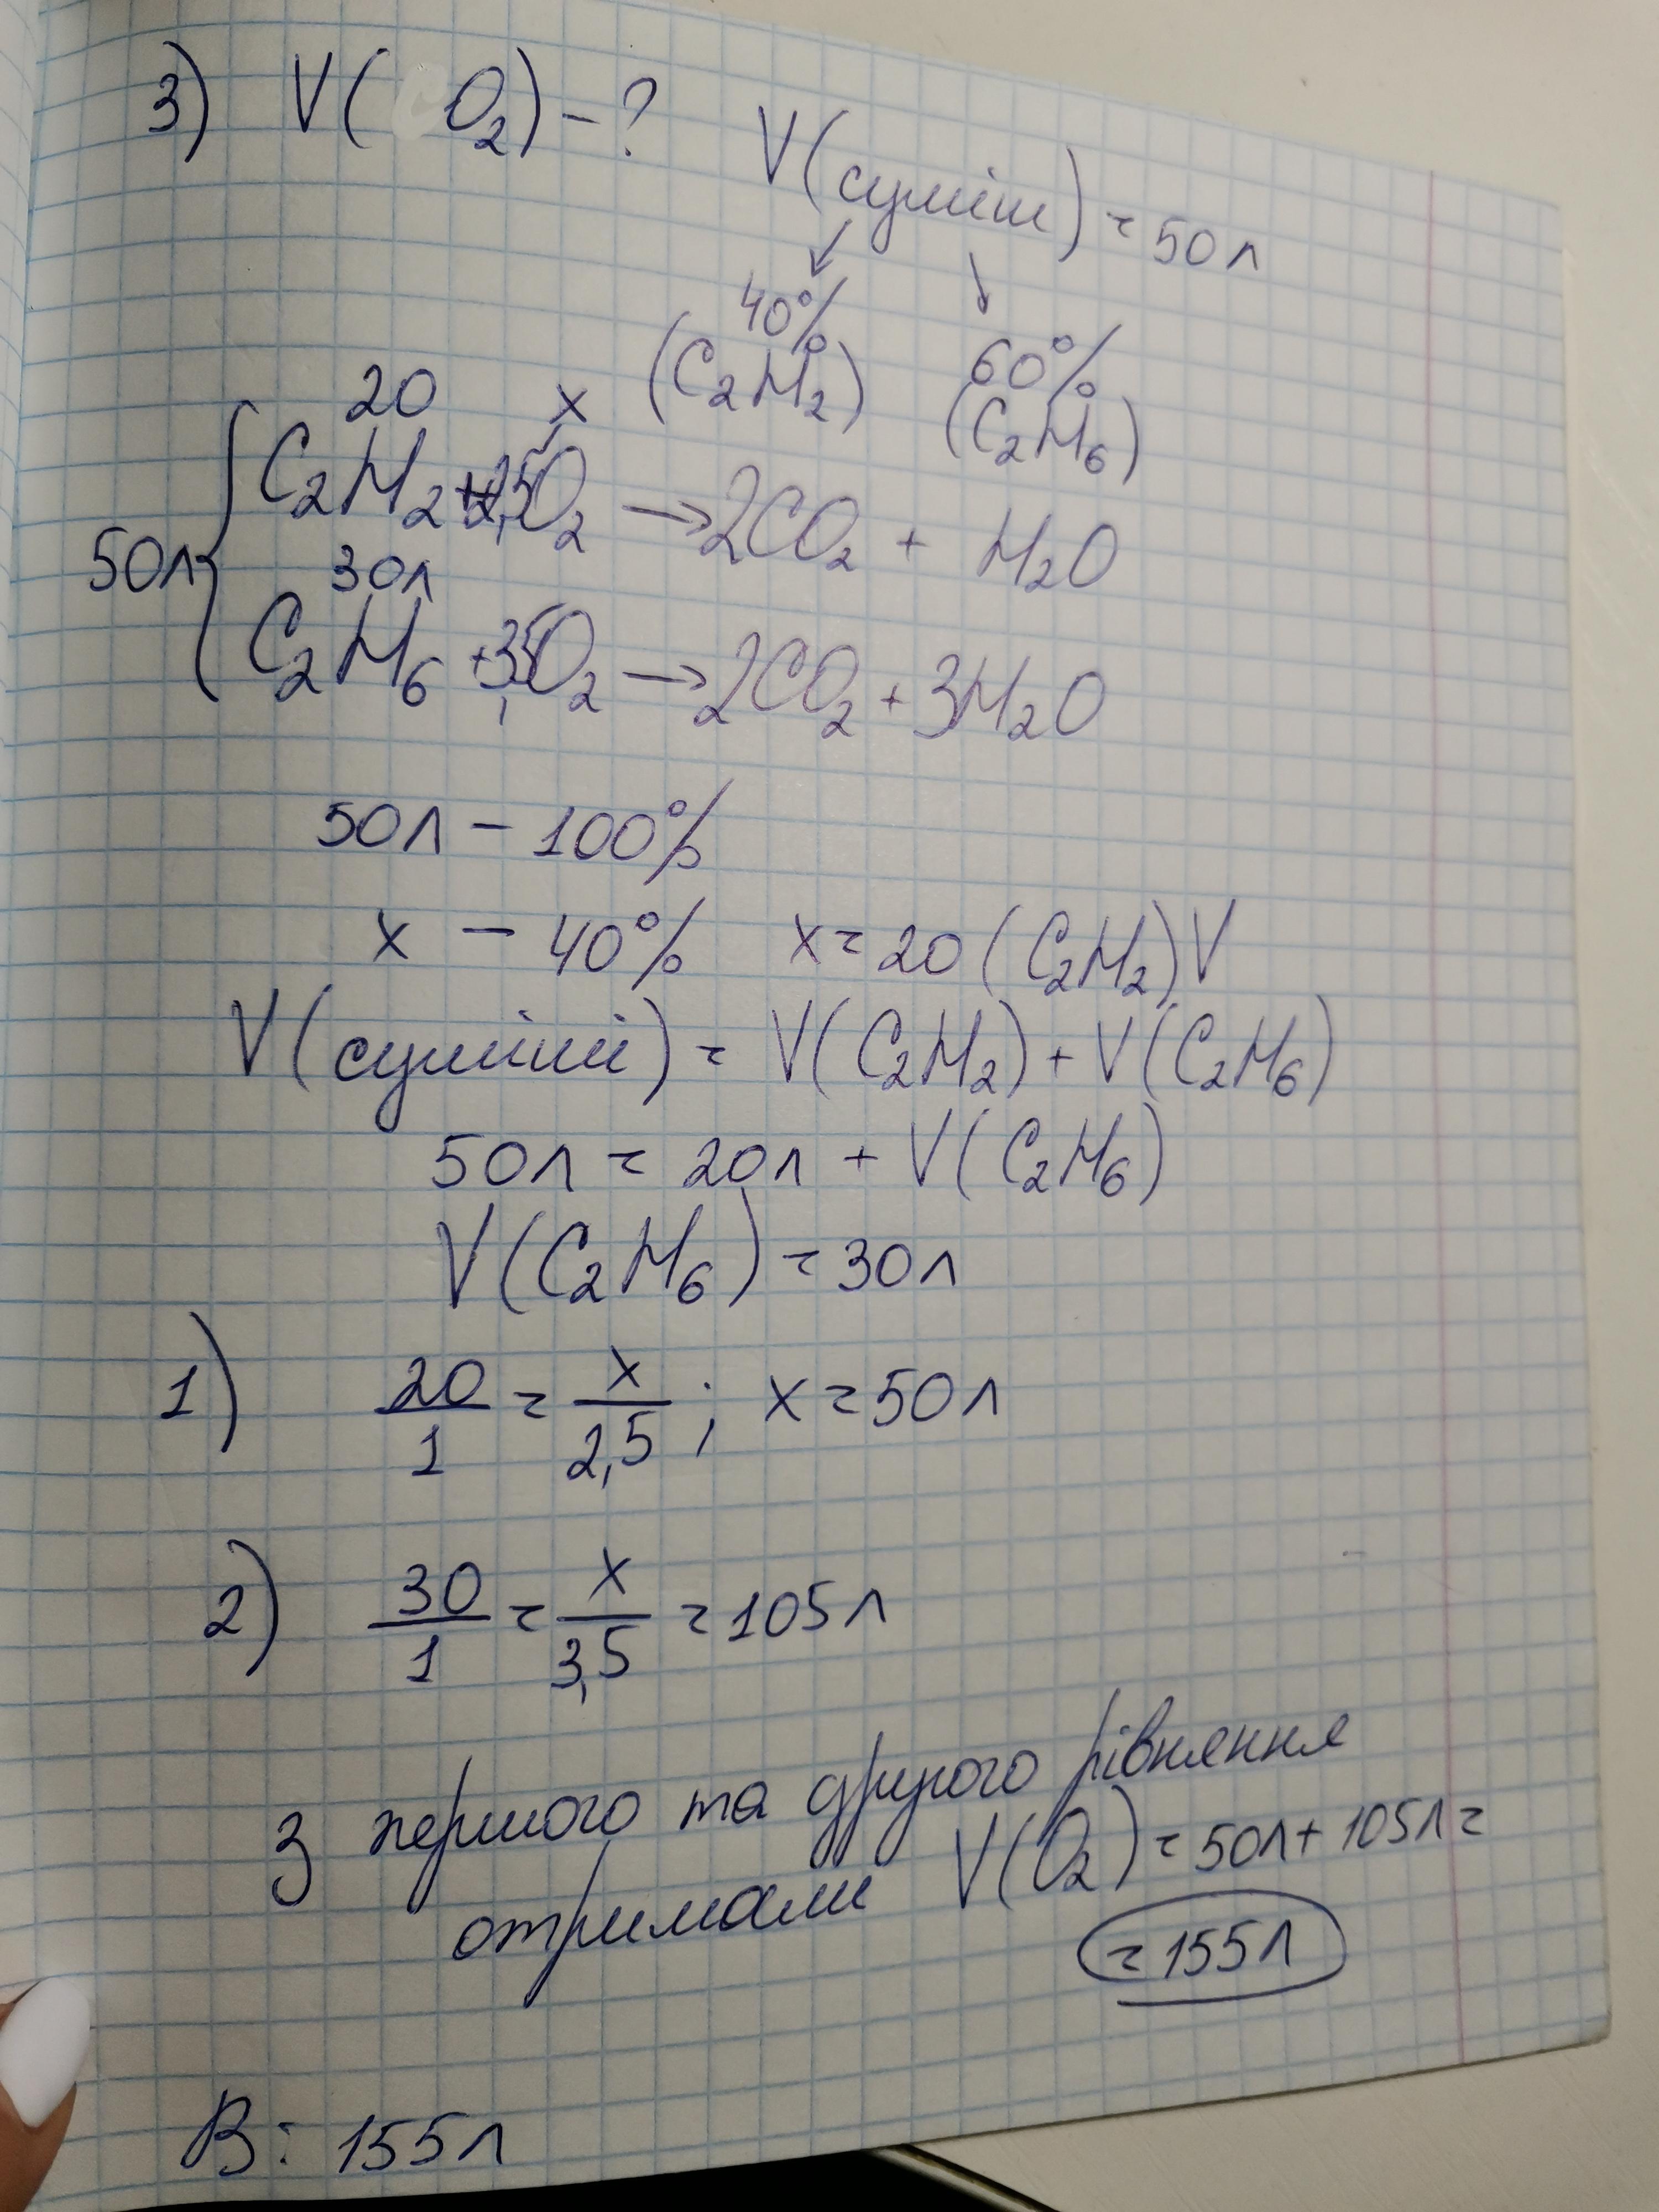 3) V( O₂) - ?
V(суміш) = 50л
40% 60%
(C₂H₂) (C₂H₆)
20 x
C₂H₂ + 2,5O₂ → 2CO₂ + H₂O
50л 30л
C₂H₆ + 3,5O₂ → 2CO₂ + 3H₂O
50л - 100%
x - 40% x = 20 (C₂H₂)V
V(суміші) = V(C₂H₂) + V(C₂H₆)
50л = 20л + V(C₂H₆)
V(C₂H₆) = 30л
1) 20/1 = x/2,5 ; x = 50л
2) 30/1 = x/3,5 = 105л
З першого та другого рівняння
отримали V(O₂) = 50л + 105л =
= 155л
В: 155л